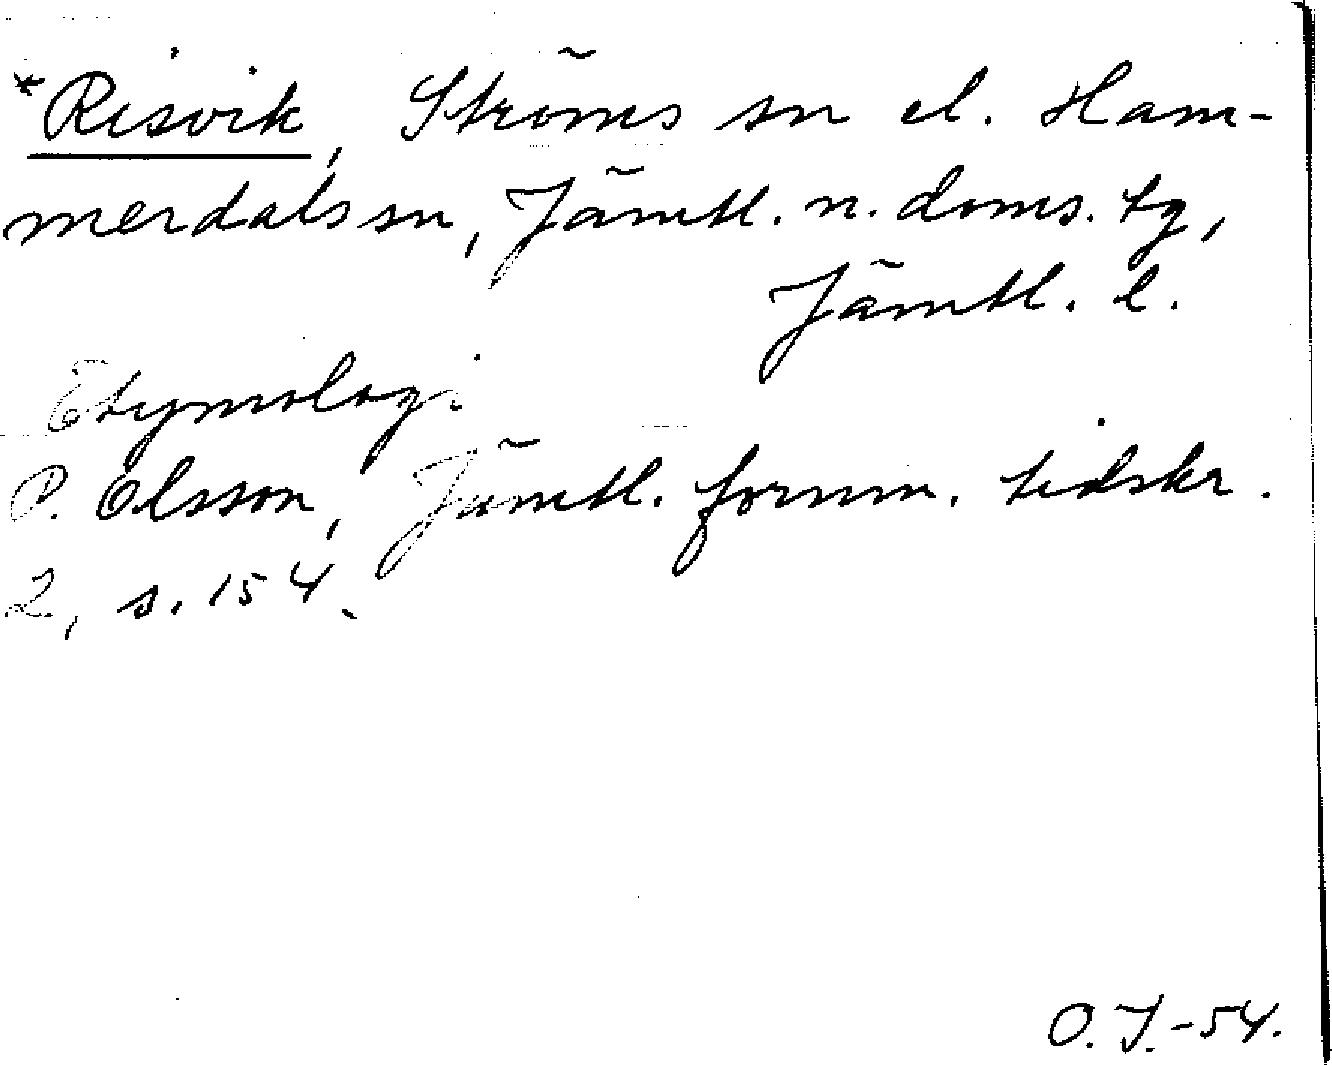 *Risvik, Ströms sn el. Ham-
merdals sn, Jämtl. n. doms. tg,
Jämtl. l.
Etymologi
P. Olsson, Jämtl. fornm. tidskr.
2, s. 154.
O. J. -54.